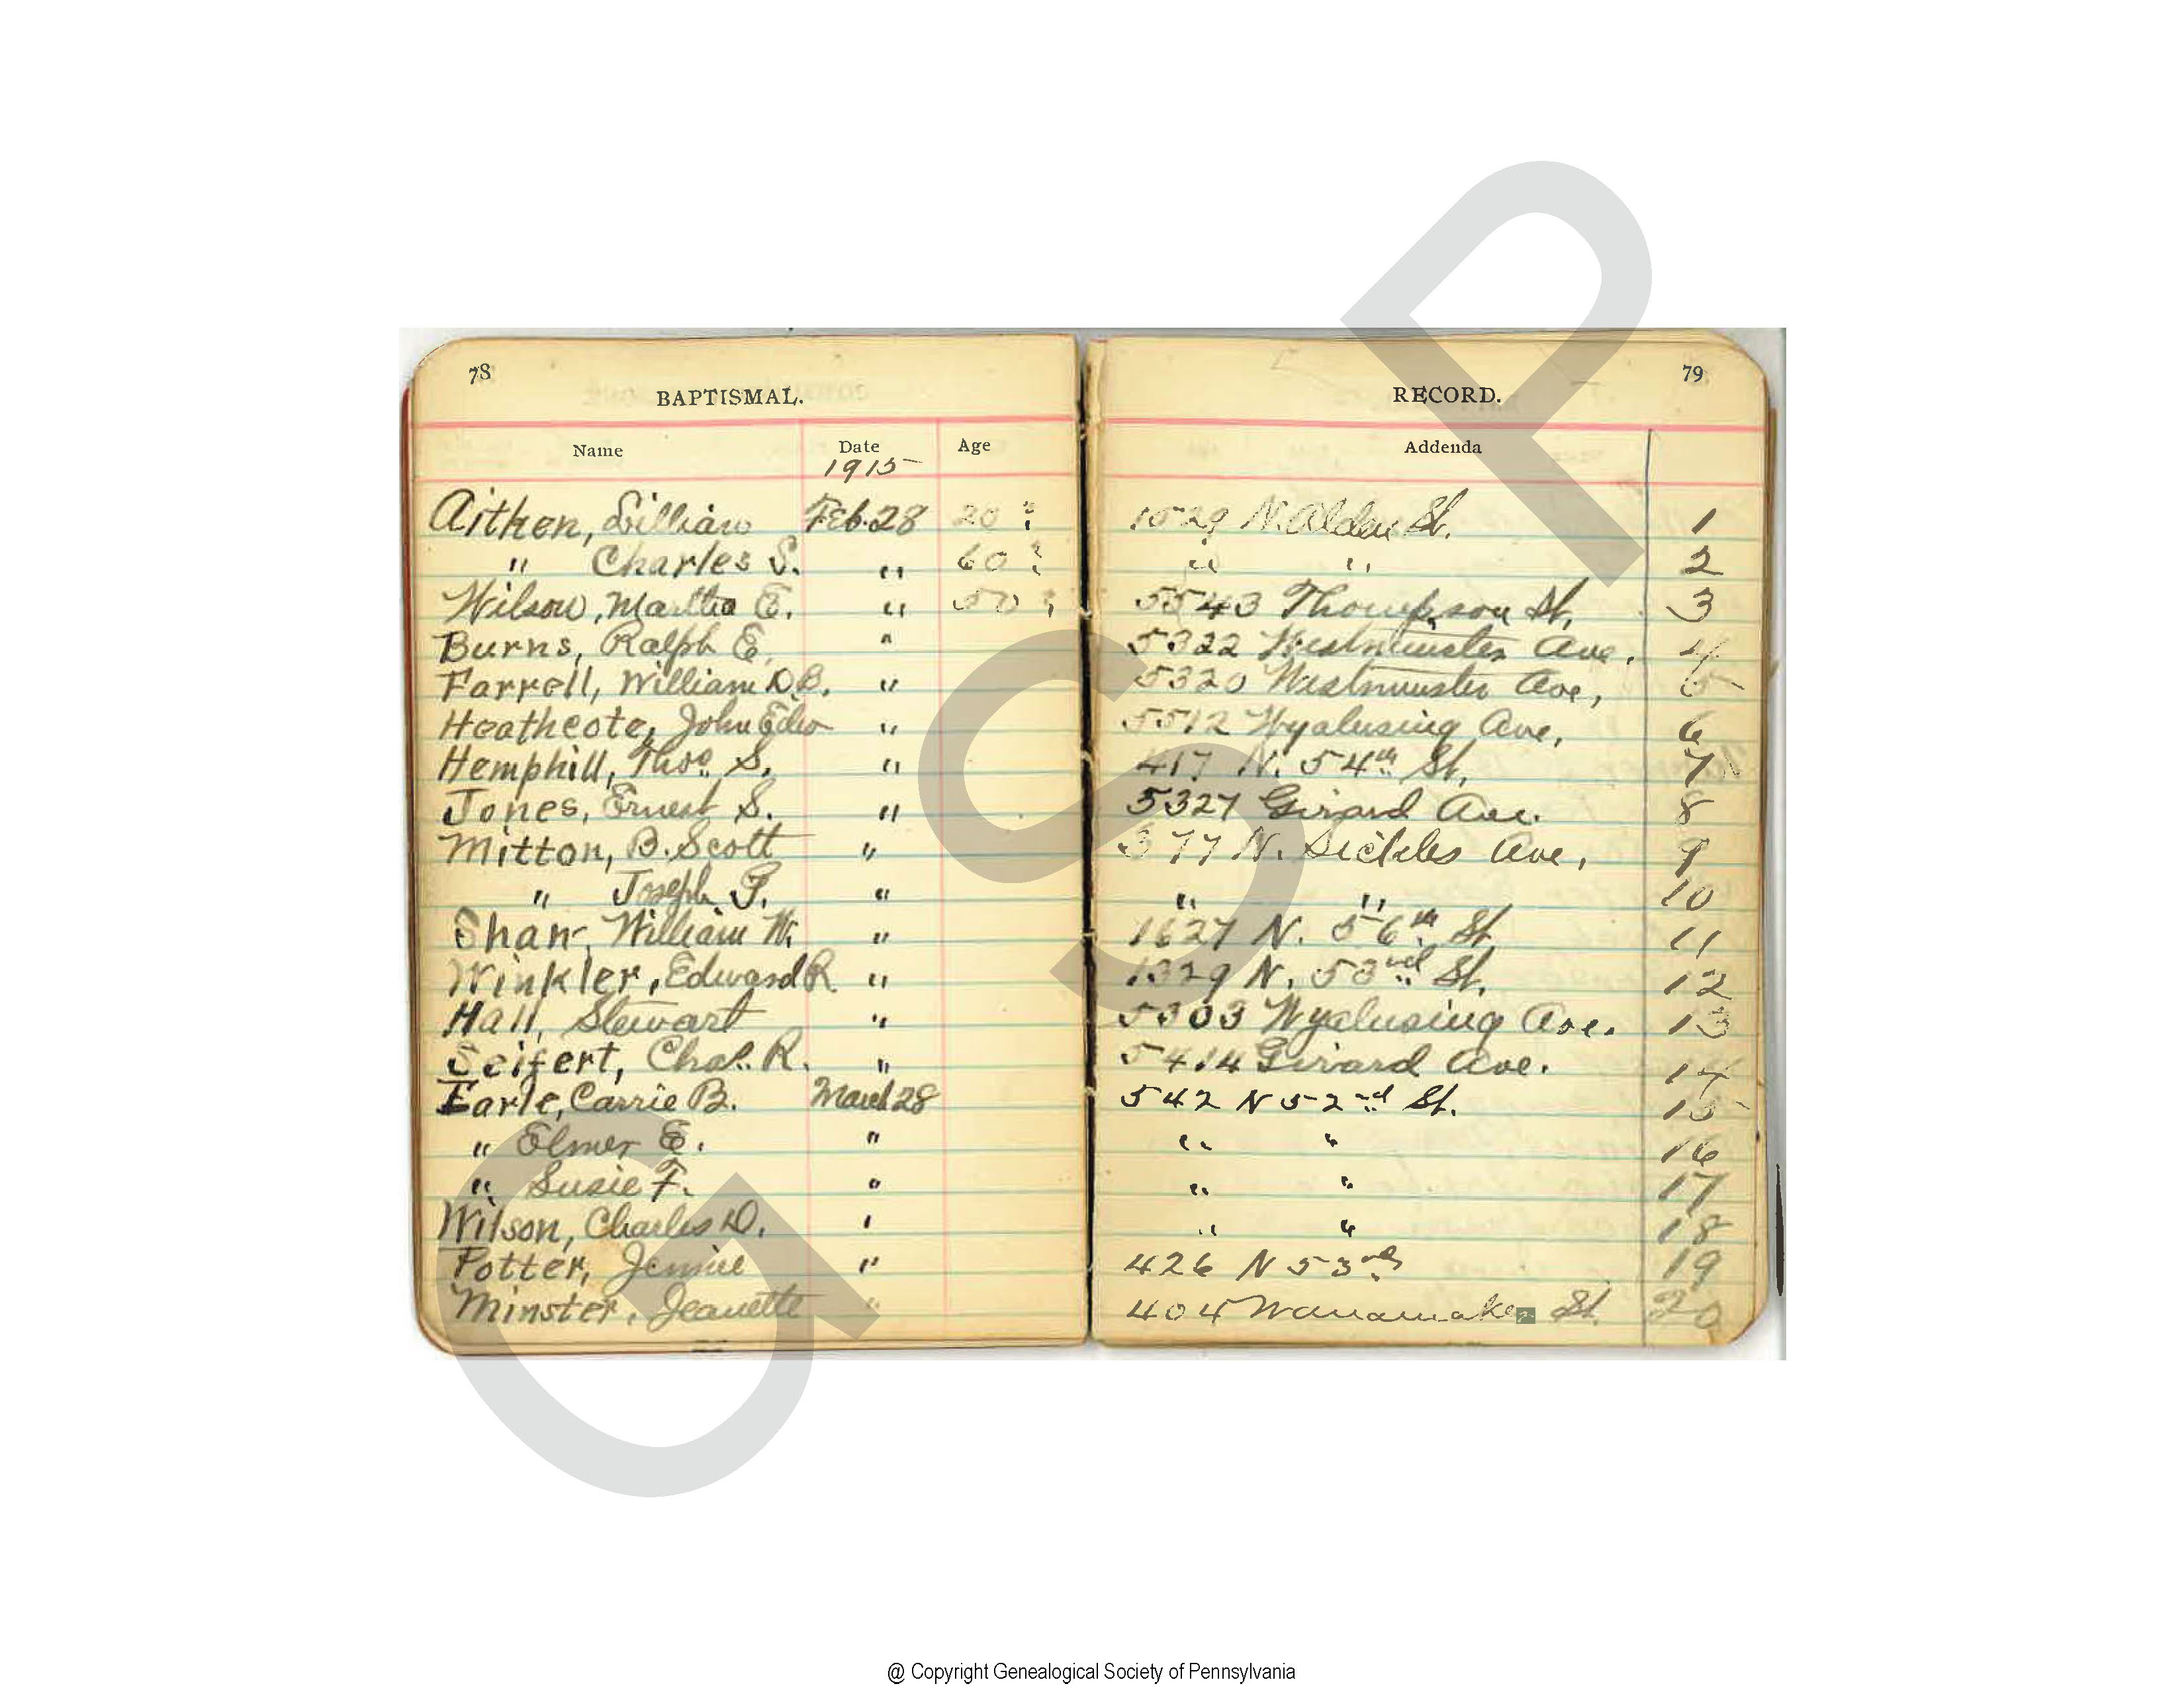 78
BAPTISMAL.
Name Date Age
1915
Aitken, Lillian Feb. 28 20 ?
" Charles S. " 60 ?
Wilson, Martha E. " 50 ?
Burns, Ralph E. "
Farrell, William D.B. "
Heathcote, John Edw "
Hemphill, Thos. S. "
Jones, Ernest S. "
Mitton, B. Scott "
" Joseph "
William W. "
Winkler, Edward R "
Hall, Stewart "
Seifert, Chas. R. "
Earle, Carrie B. March 28
" Elmer E. "
" Susie F. "
Wilson, Charles D. "
Potter, Jennie "
Minster, Jeanette "
79
RECORD.
Addenda
1529 N. Alden St. 1
" " 2
5543 Thompson St, 3
5322 Westminster Ave. 4
5320 Westminster Ave, 5
5512 Wyalusing Ave, 6
417 N. 54th St, 7
5327 Girard Ave. 8
377 N. Sickles Ave, 9
" " 10
1627 N. 56th St 11
1329 N. 53rd St. 12
5303 Wyalusing Ave. 13
5414 Girard Ave. 14
542 N 52nd St. 15
" " 16
" " 17
" " 18
426 N 53rd 19
404 Wanamaker St. 20
GSP
@ Copyright Genealogical Society of Pennsylvania